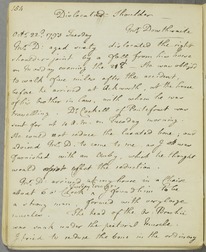 184
Dislocated Shoulder
Mr. D
Oct. 22d. 1793 Tuesday
Mr. D aged sixty dislocated the right
shoulder joint by a fall from his horse
on Friday evening the 18th. He was obliged
to walk five miles after the accident,
before he arrived at Ackworth, at the house
of his brother in law, with whom he was
travelling. of Pontefract was
sent for at 4 on Tuesday morning
He could not reduce the luxated bone, and
advised Mr. D. to come to me, as I was
furnished with an Ambe, which he thought
would assist effect the reduction.
Mr. D. arrived at my house in a Chaise
about 6 o'clock. I found him to be
a strong man, formed with very large
muscles. The head of the os Humeri
was sunk under the pectoral muscle.
I tried to reduce the bone in the ordinary